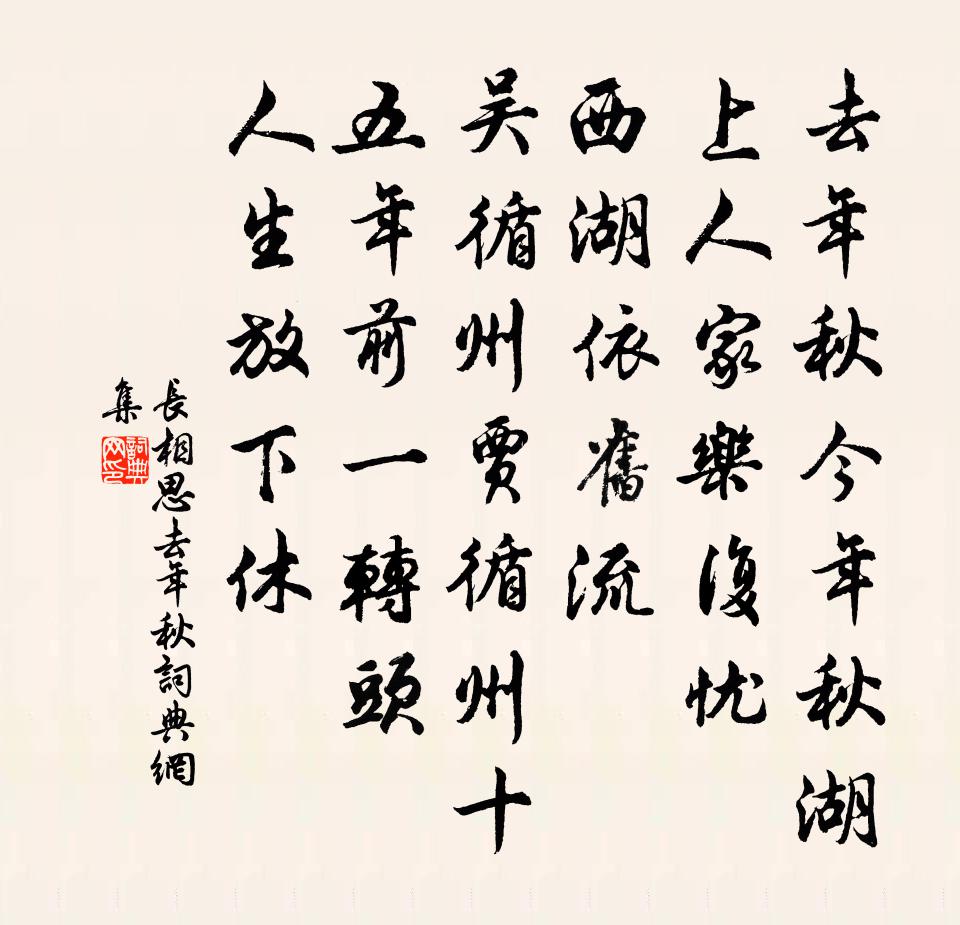 去年秋今年秋湖
上人家樂復忧
西湖依舊流
吴循州賈循州十
五年前一轉頭
人生放下休
長相思去年秋詞典網
集
詞典
网印